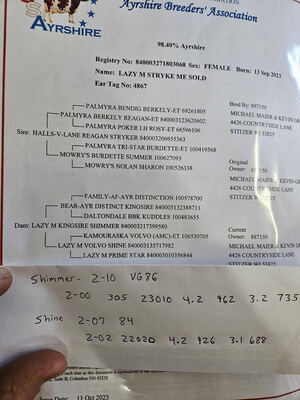 AYRSHIRE
Ayrshire Breeders' Association
98.40% Ayrshire
Registry No: 840003271803068 Sex: FEMALE Born: 13 Sep 2023
Name: LAZY M STRYKE ME SOLD
Ear Tag No: 4867
PALMYRA BENDIG BERKELY-ET 69261805
PALMYRA BERKELY REAGAN-ET 840003123620602
PALMYRA POKER LH ROSY-ET 66596106
Sire: HALLS-V-LANE REAGAN STRYKER 840003206955363
PALMYRA TRI-STAR BURDETTE-ET 100419568
MOWRY'S BURDETTE SUMMER 100627093
MOWRY'S NOLAN SHARON 100526338
Bred By: 887150
MICHAEL MAIER & KEVIN GR
4426 COUNTRYSIDE LANE
STITZER WI 53825
Original
Owner: 887150
MICHAEL MAIER & KEVIN G
4426 COUNTRYSIDE LANE
STITZER WI
FAMILY-AF-AYR DISTINCTION 100578700
BEAR-AYR DISTINCT KINGSIRE 840003132388711
DALTONDALE BBK KUDDLES 100483655
Dam: LAZY M KINGSIRE SHIMMER 840003217399580
KAMOURASKA VOLVO (AMC)-ET 106530705
LAZY M VOLVO SHINE 840003135717982
LAZY M PRIME STAR 840003010356844
Current
Owner: 887150
MICHAEL MAIER & KEVIN
4426 COUNTRYSIDE LAN
STITZER WI 53825
Shimmer- 2-10 VG86
2-00 305 23010 4.2 962 3.2 735
Shine 2-07 84
2-02 22020 4.2 926 3.1 688
Suite B, Columbus OH 43228
Issue Date: 11 Oct 2023